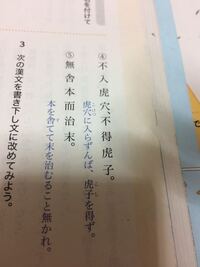 を付けて
④不入虎穴、不得虎子。
虎穴に入らずんば、虎子を得ず。
⑤無舎本而治末。
本を舎てて末を治むること無かれ。
3 次の漢文を書き下し文に改めてみよう。